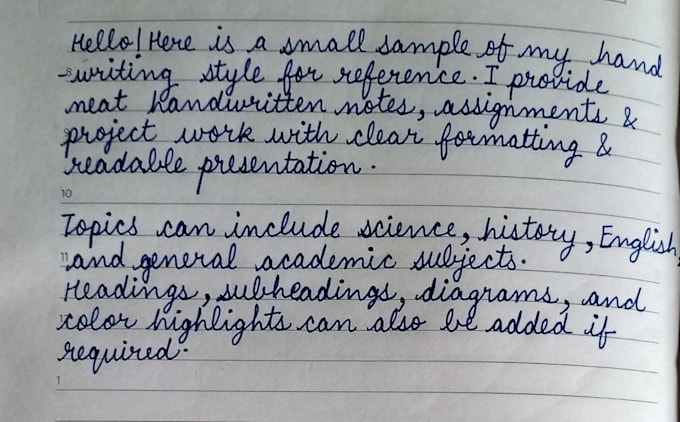 Hello! Here is a small sample of my hand
-writing style for reference. I provide
neat handwritten notes, assignments &
project work with clear formatting &
readable presentation.
10
Topics can include science, history, English,
11
and general academic subjects.
Headings, subheadings, diagrams, and
color highlights can also be added if
required.
1